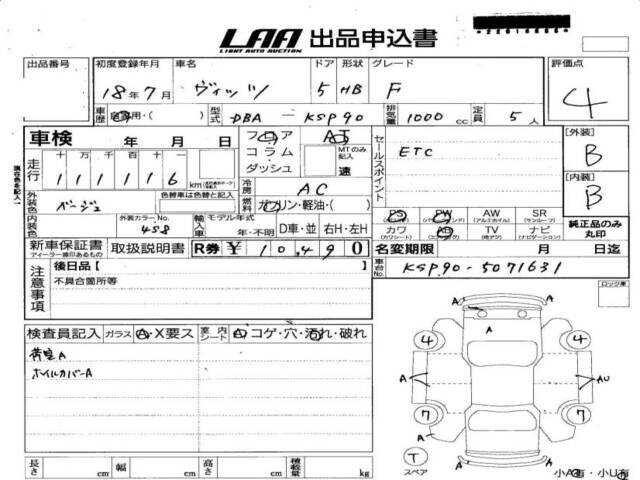 LAA 出品申込書
LIGHT AUTO AUCTION
出品番号 初度登録年月 車名 ドア 形状 グレード 評価点
18年7月 ヴィッツ 5 HB F 4
車歴 自家用・( ) 型式 DBA - KSP90 排気量 1000 cc 定員 5人
車検 年 月 日 フロア AT
コラム・ MTのみ記入
ダッシュ 速
走行 十万千百十一
111116 km
冷房 AC
セールスポイント ETC
[外装] B
[内装] B
外装色 ベージュ 色替車は色替と記入 燃料 ガソリン・軽油・( )
内装色 外装カラーNo. 458 輸入車 モデル年式 年・不明 D車・並 右H・左H
PS PW AW SR
(パワステ) (パワーウィンドウ) (アルミホイル) (サンルーフ)
カワ AB TV ナビ
(カワシート) (エアバッグ) (地デジ) (ナビゲーション)
純正品のみ丸印
新車保証書 取扱説明書 R券 ¥10,490
ディーラー捺印あるもの
名変期限 月 日迄
注意事項 後日品[ ]
不具合箇所等
車台No. KSP90-5071631
ロック車
検査員記入 ガラス A・X要ス 室内 シート A コゲ・穴・汚れ・破れ
荷室A
ホイルカバーA
A
4 4
A A A AU
7 7
A A
T
スペア
A
小A有・小U有
長さ cm 幅 cm 高さ cm 積載量 kg
現在色を記入